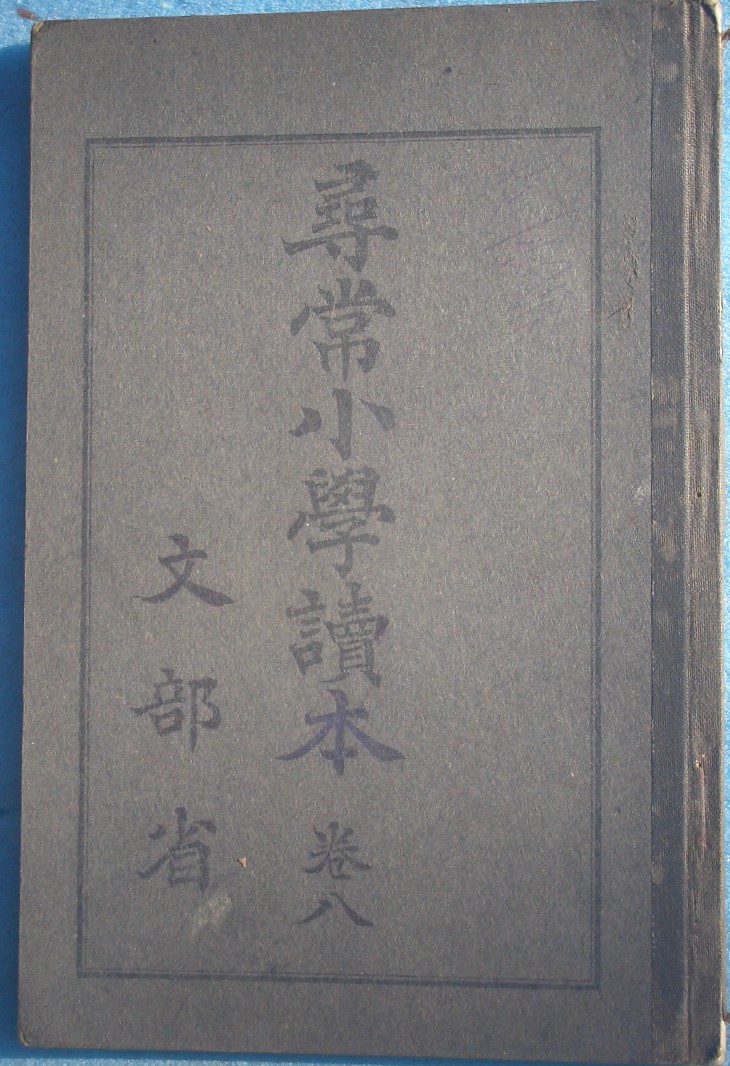 尋常小學讀本 卷八
文部省